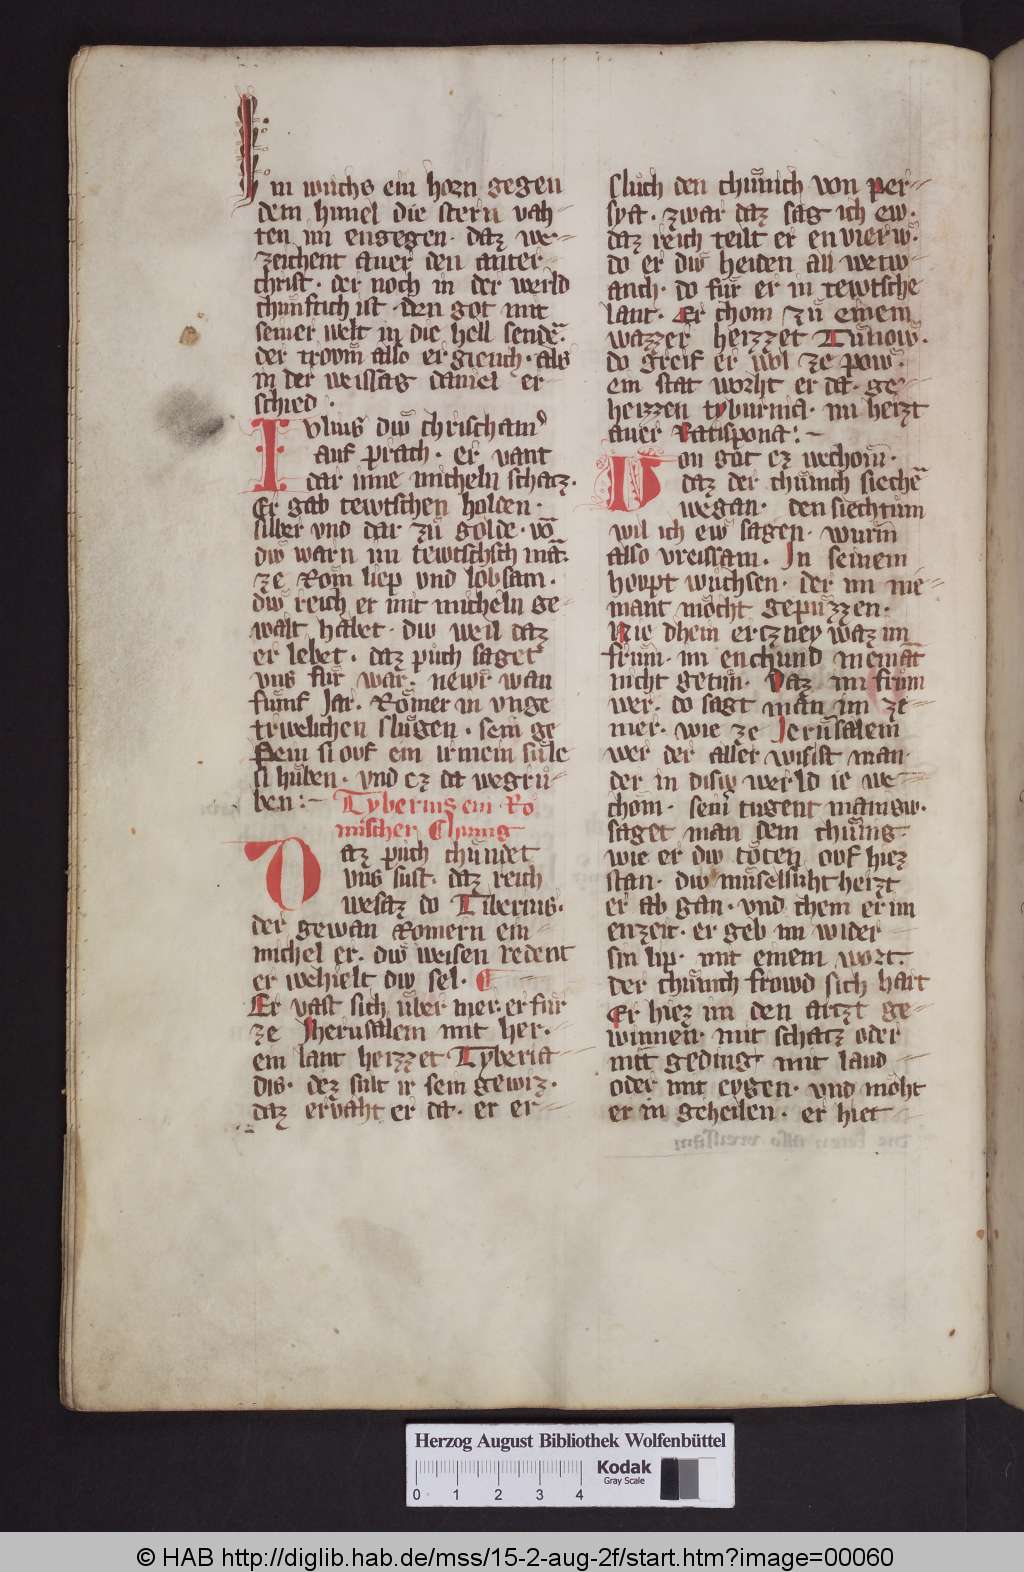 Im wuchs ein horn gegen
dem himel die stern vah-
ten im engegen · daz we-
zeichent auer den anter-
christ · der noch in der werld
chunftich ist · den got mit
seiner welt in die hell sende͛.
der trovm also ergiench · als
in der weissag daniel er-
schied ·
Ivlius diw chrischam͛
auf prach · er vant
dar inne micheln schatz ·
Er gab tewtschen holden ·
silber vnd dar zů golde · vō
diw warn im tewtschsch mā̄.
ze Rom liep vnd lobsam ·
diw reich er mit micheln ge-
walt habet · diw weil daz
er lebet · daz půch saget
vns für war · newr wan
fünf Jar · Römer in vnge
triwelichen slůgen · sein ge
Pein si ovf ein irmein sůle
si hůben · vnd ez da wegrů-
ben : ~
Tyberius ein Ro
mischer Chunig
Daz půch chündet
vns sust · daz reich
wesaz do Tiberius ·
der gewan Romern ein-
michel er · diw weisen redent
er wehielt diw sel ·
Er vast sich über mer · er für
ze Jherusalem mit her ·
ein lant heizzet Tyberia
dis · dez sült ir sein gewiz ·
daz ervaht er da · er er-
slůch den chünich von per-
sya · zwar daz sag ich ew ·
daz reich teilt er en vierw ·
do er diw heiden all weiw
anch · do für er in tewtsche
lant · Er chom zů einem
wazzer heizzet Tůnow ·
do greif er wol ze pow ·
ein stat worht er da · ge-
heizzen tyburnia · im heizt
auer Ratispona : ~
Von got ez wechom ·
daz der chünich sieche
wegan · den siechtum
wil ich ew sagen · wurm
also vreissam · In seinem
hovpt wůchsen · der im nie-
mant möcht gepüzzen ·
Nie dhein ertzney waz im
frum · im enchund niemāt
nicht getůn · Daz im frum
wer · do sagt man im ze
mer · wie ze Jerusalem
wer der aller wisist man ·
der in disiw werld ie we-
chom · sein tugent manigw ·
saget man dem chünig ·
wie er diw töten ovf hiez
stan · diw müselsuht heizt
er ab gan · vnd chem er im
enzeit · er geb im wider
sin lip · mit einem wort ·
der chünich frowd sich hart
Er hiez im den artzt ge-
winnen · mit schatz oder
mit geding · mit land
oder mit eygen · vnd möht
er in geheilen · er hiet
Herzog August Bibliothek Wolfenbüttel
0 1 2 3 4
Kodak
Gray Scale
© HAB http://diglib.hab.de/mss/15-2-aug-2f/start.htm?image=00060